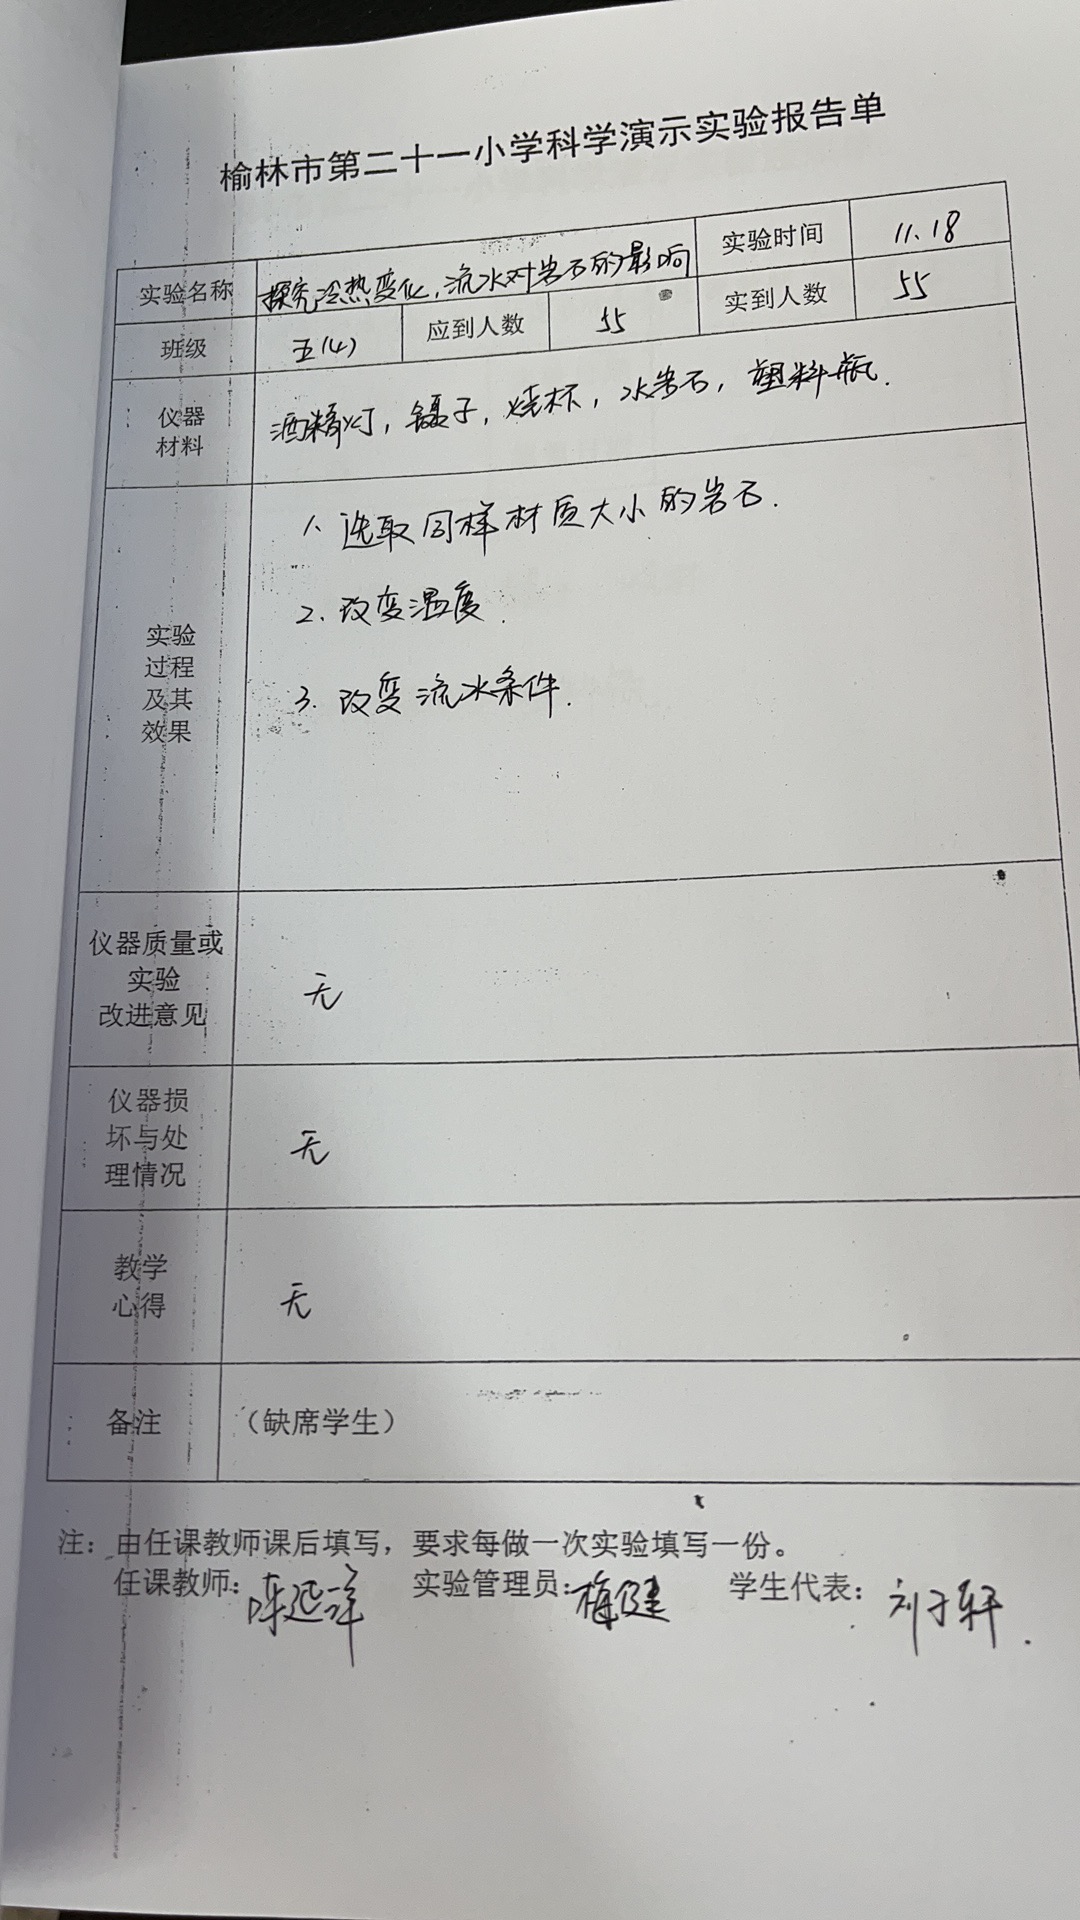 榆林市第二十一小学科学演示实验报告单
实验名称 探究冷热变化,流水对岩石的影响 实验时间 11.18
班级 五(4) 应到人数 55 实到人数 55
仪器
材料
酒精灯,镊子,烧杯,水岩石,塑料瓶.
实验
过程
及其
效果
1. 选取同样材质大小的岩石.
2. 改变温度.
3. 改变流水条件.
仪器质量或
实验
改进意见
无
仪器损
坏与处
理情况
无
教学
心得
无
备注 (缺席学生)
注:由任课教师课后填写,要求每做一次实验填写一份。
任课教师:陈延洋 实验管理员:梅健 学生代表:刘子轩.